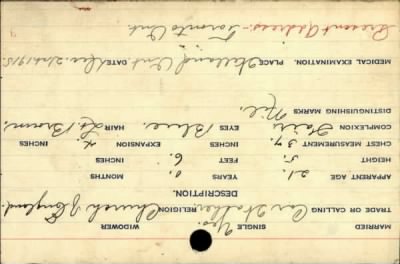 MARRIED SINGLE Yes. WIDOWER
TRADE OR CALLING Car RELIGION Church of England.
DESCRIPTION.
APPARENT AGE 21 YEARS 0. MONTHS
HEIGHT 5. FEET 6. INCHES
CHEST MEASUREMENT 37. INCHES EXPANSION 4. INCHES
COMPLEXION Fair EYES Blue. HAIR Lt. Brown.
DISTINGUISHING MARKS Nil.
MEDICAL EXAMINATION. PLACE Welland Ont. DATE Dec. 21st. 1915.
Present Address:- Toronto Ont.